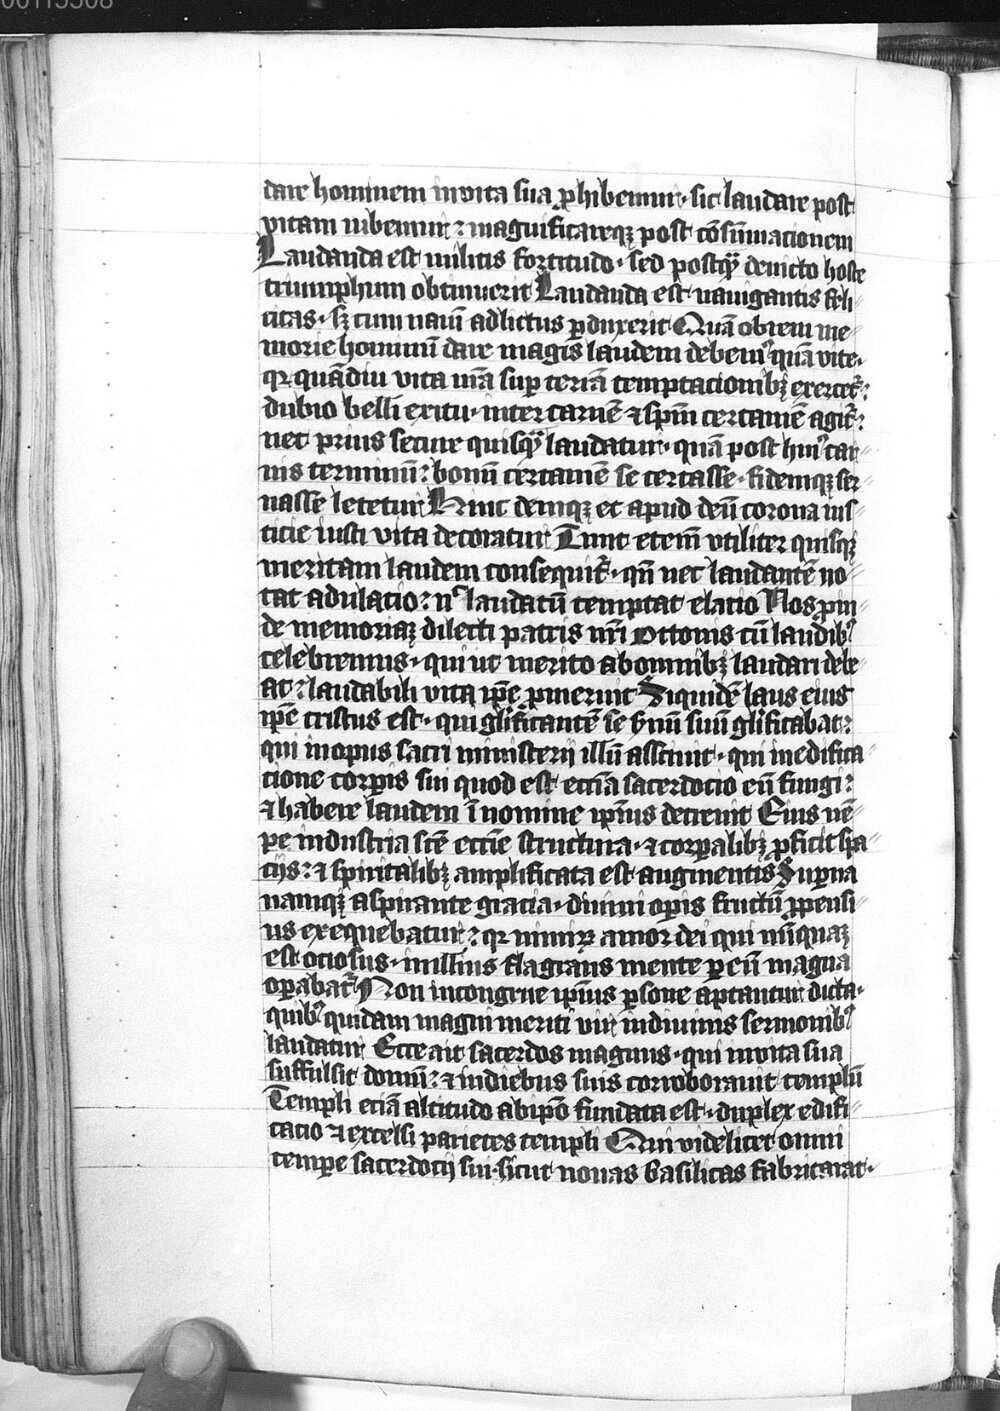 00115508
dare hominem invita sua ꝓhibemur· sic laudare post
vitam iubemur ⁊ magnificareqꝫ post cōsūmacionem
Laudanda est militis fortitudo· sed postꝙ̄ devicto hoste
triumphum obtinuerit Laudanda est navigantis feli⸗
citas· sꝫ cum navī adlictus ꝑduxerit Quā obrem me⸗
morie hominū dare magis laudem debemꝰ quā vite·
qꝛ quādiu vita nr̄a suꝑ terrā temptacionibꝫ exercet᷑
dubio belli exitu· inter carnē ⁊ spm̄ certamē agit᷑
nec prius secure quisqꝫ laudatur· quā post huiꝰ car⸗
nis terminū bonū certamē se certasse· fidemqꝫ ser⸗
vasse letetur Hinc deniqꝫ et apud deū corona ius⸗
ticie iusti vita decoratur Tunc etem̄ vtiliter quisqꝫ
meritam laudem consequit᷑· qn̄ nec laudantē no⸗
tat adulacio nᶜ laudatū temptat elatio Nos ꝓin⸗
de memoriaꝫ dilecti patris nr̄i Ottonis cū laudibꝰ
celebremus· qui ut merito abomnibꝫ laudari debe⸗
at laudabili vita ip̄e ꝓmeruit Siquidē laus eius
ip̄e cristus est· qui glīficantē se ẜvū suū glīficabat
qui inopus sacri ministerij illū asscivit· qui inedifica⸗
cione corꝑis sui quod est eccīa sacerdocio eū fungi
⁊ habere laudem ī nomine ip̄ius decrevit Eius nē⸗
pe industria scē eccīe structura· ⁊ corꝑalibꝫ ꝓficit spa⸗
cijs ⁊ spiritalibꝫ amplificata est augmentis Suꝑna
namqꝫ aspirante gracia· divini oꝑis fructū ꝓpensi⸗
us exequebatur qꝛ nimiꝝ amor dei qui nūquaꝫ
est ociosus· inillius flagrans mente ꝑ eū magna
oꝑabat᷑ Non incongrue ip̄ius ꝑsone aptantur dicta·
quibꝰ quidam magni meriti vir indivinis sermonibꝰ
laudatur Ecce ait sacerdos magnus· qui invita sua
suffulsit domū ⁊ indiebus suis corroboravit templū
Templi eciā altitudo abip̄o fundata est· duplex edifi⸗
catio ⁊ excelsi parietes templi Qui videlicet omni
temꝑe sacerdotij sui· sicut novas basilicas fabricarat·